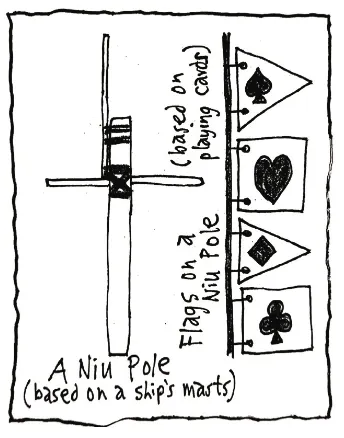 A Niu Pole
(based on a ship's masts)
Flags on a
Niu Pole
(based on
playing cards)